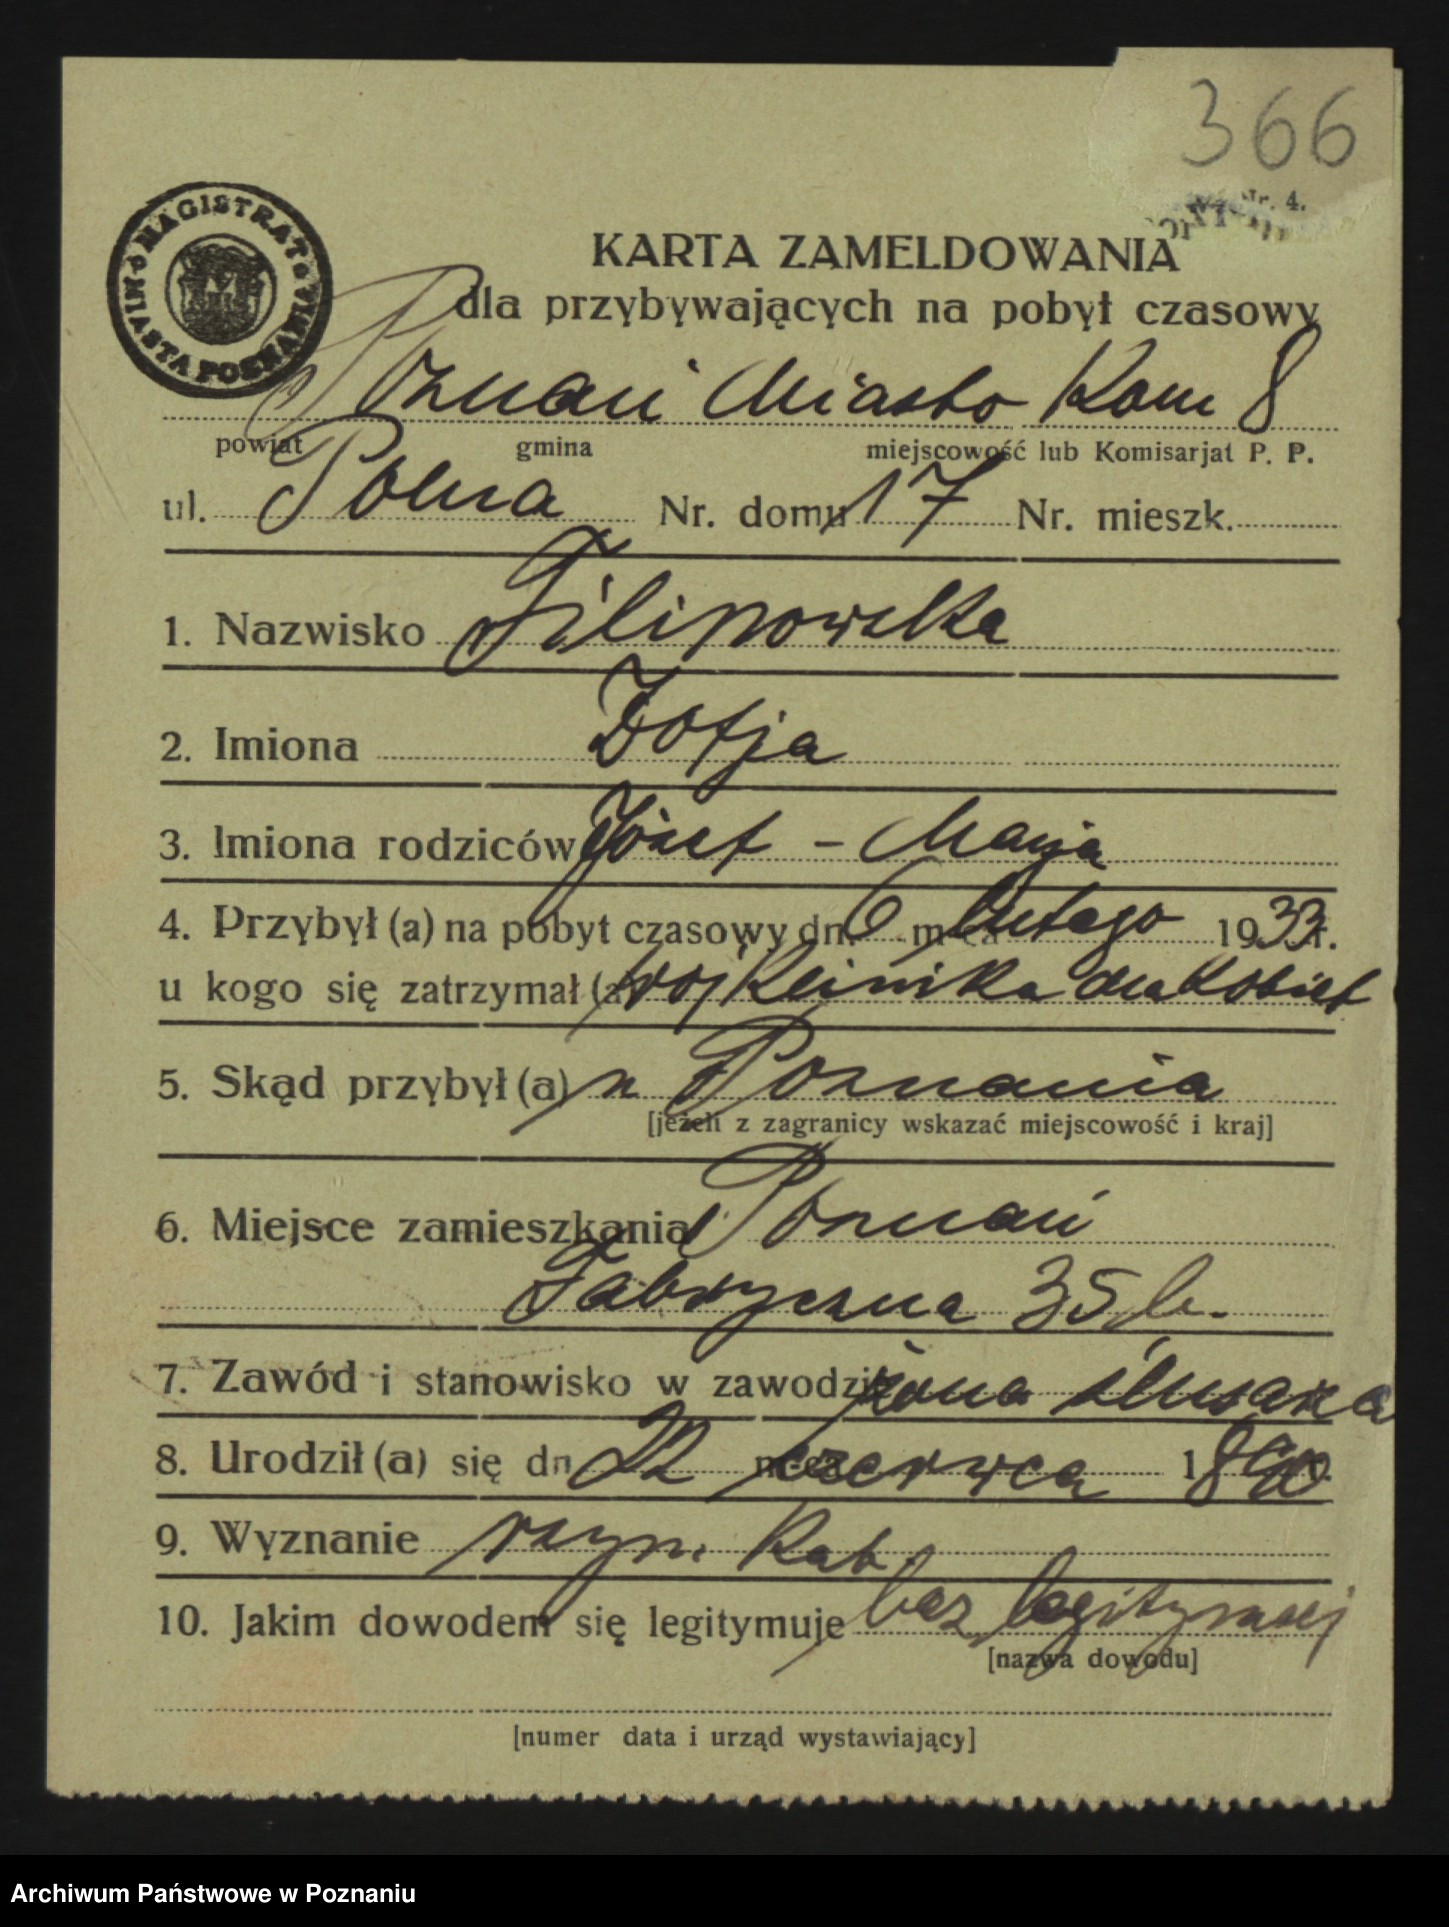 366
Nr. 4.
MAGISTRAT MIASTA POZNANIA
KARTA ZAMELDOWANIA
dla przybywających na pobyt czasowy
Poznań Miasto Kom 8
powiat gmina miejscowość lub Komisarjat P. P.
ul. Polna Nr. domu 17 Nr. mieszk.
1. Nazwisko Filipowska
2. Imiona Zofja
3. Imiona rodziców Józef - Marja
4. Przybył (a) na pobyt czasowy dn. 6 m-ca lutego 1933 r.
u kogo się zatrzymał (a) woj Klinika dla Kobiet
5. Skąd przybył (a) z Poznania
[jeżeli z zagranicy wskazać miejscowość i kraj]
6. Miejsce zamieszkania Poznań
Fabryczna 35 b.
7. Zawód i stanowisko w zawodzie żona ślusarza
8. Urodził (a) się dn 22 m-ca czerwca 1890 r.
9. Wyznanie rzym. Kat.
10. Jakim dowodem się legitymuje bez legitymacj
[nazwa dowodu]
[numer data i urząd wystawiający]
Archiwum Państwowe w Poznaniu